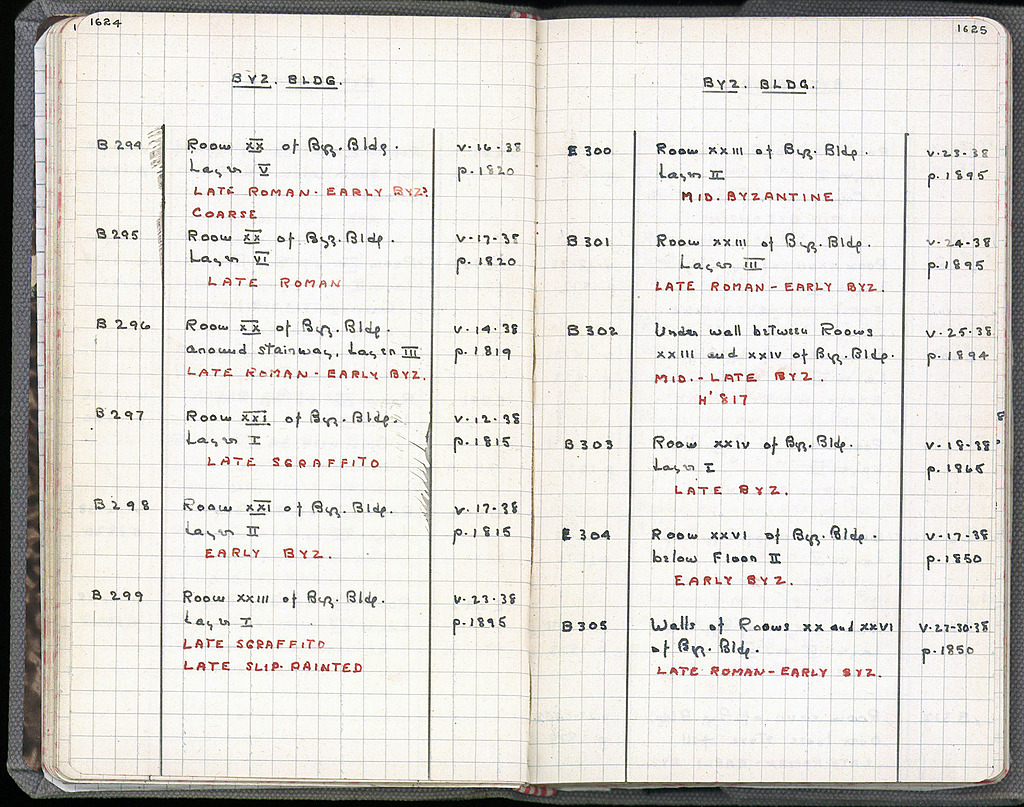 1624
BYZ. BLDG.
B 294 Room XX of Byz. Bldg. V-16-38
Layer V p. 1820
LATE ROMAN-EARLY BYZ?
COARSE
B 295 Room XX of Byz. Bldg. V-17-38
Layer VI p. 1820
LATE ROMAN
B 296 Room XX of Byz. Bldg. V-14-38
around stairway, Layer III p. 1819
LATE ROMAN-EARLY BYZ.
B 297 Room XXI of Byz. Bldg. V-12-38
Layer I p. 1815
LATE SGRAFFITO
B 298 Room XXI of Byz. Bldg. V-17-38
Layer II p. 1815
EARLY BYZ.
B 299 Room XXIII of Byz. Bldg. V-23-38
Layer I p. 1895
LATE SGRAFFITO
LATE SLIP-PAINTED
1625
BYZ. BLDG.
B 300 Room XXIII of Byz. Bldg. V-23-38
Layer II p. 1895
MID. BYZANTINE
B 301 Room XXIII of Byz. Bldg. V-24-38
Layer III p. 1895
LATE ROMAN-EARLY BYZ.
B 302 Under wall between Rooms V-25-38
XXIII and XXIV of Byz. Bldg. p. 1894
MID.-LATE BYZ.
H' 817
B 303 Room XXIV of Byz. Bldg. V-18-38
Layer I p. 1865
LATE BYZ.
B 304 Room XXVI of Byz. Bldg. V-17-38
below Floor II p. 1850
EARLY BYZ.
B 305 Walls of Rooms XX and XXVI V-27-30-38
of Byz. Bldg. p. 1850
LATE ROMAN-EARLY BYZ.